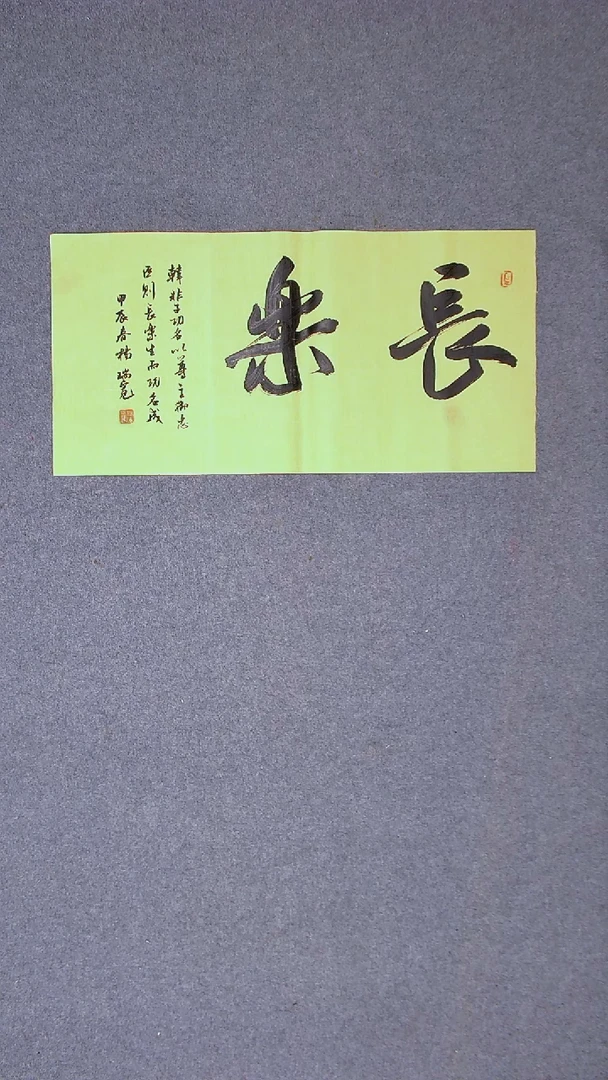 長樂
韓非子功名以尊主御忠
臣則長樂生而功名成
甲辰春 瑞寬